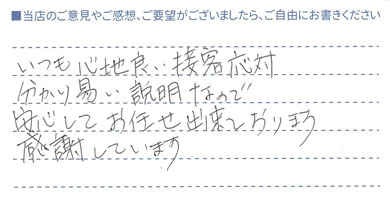 ■当店のご意見やご感想、ご要望がございましたら、ご自由にお書きください
いつも心地良い接客応対
分かり易い説明なので
安心してお任せ出来ておりまう
感謝しています